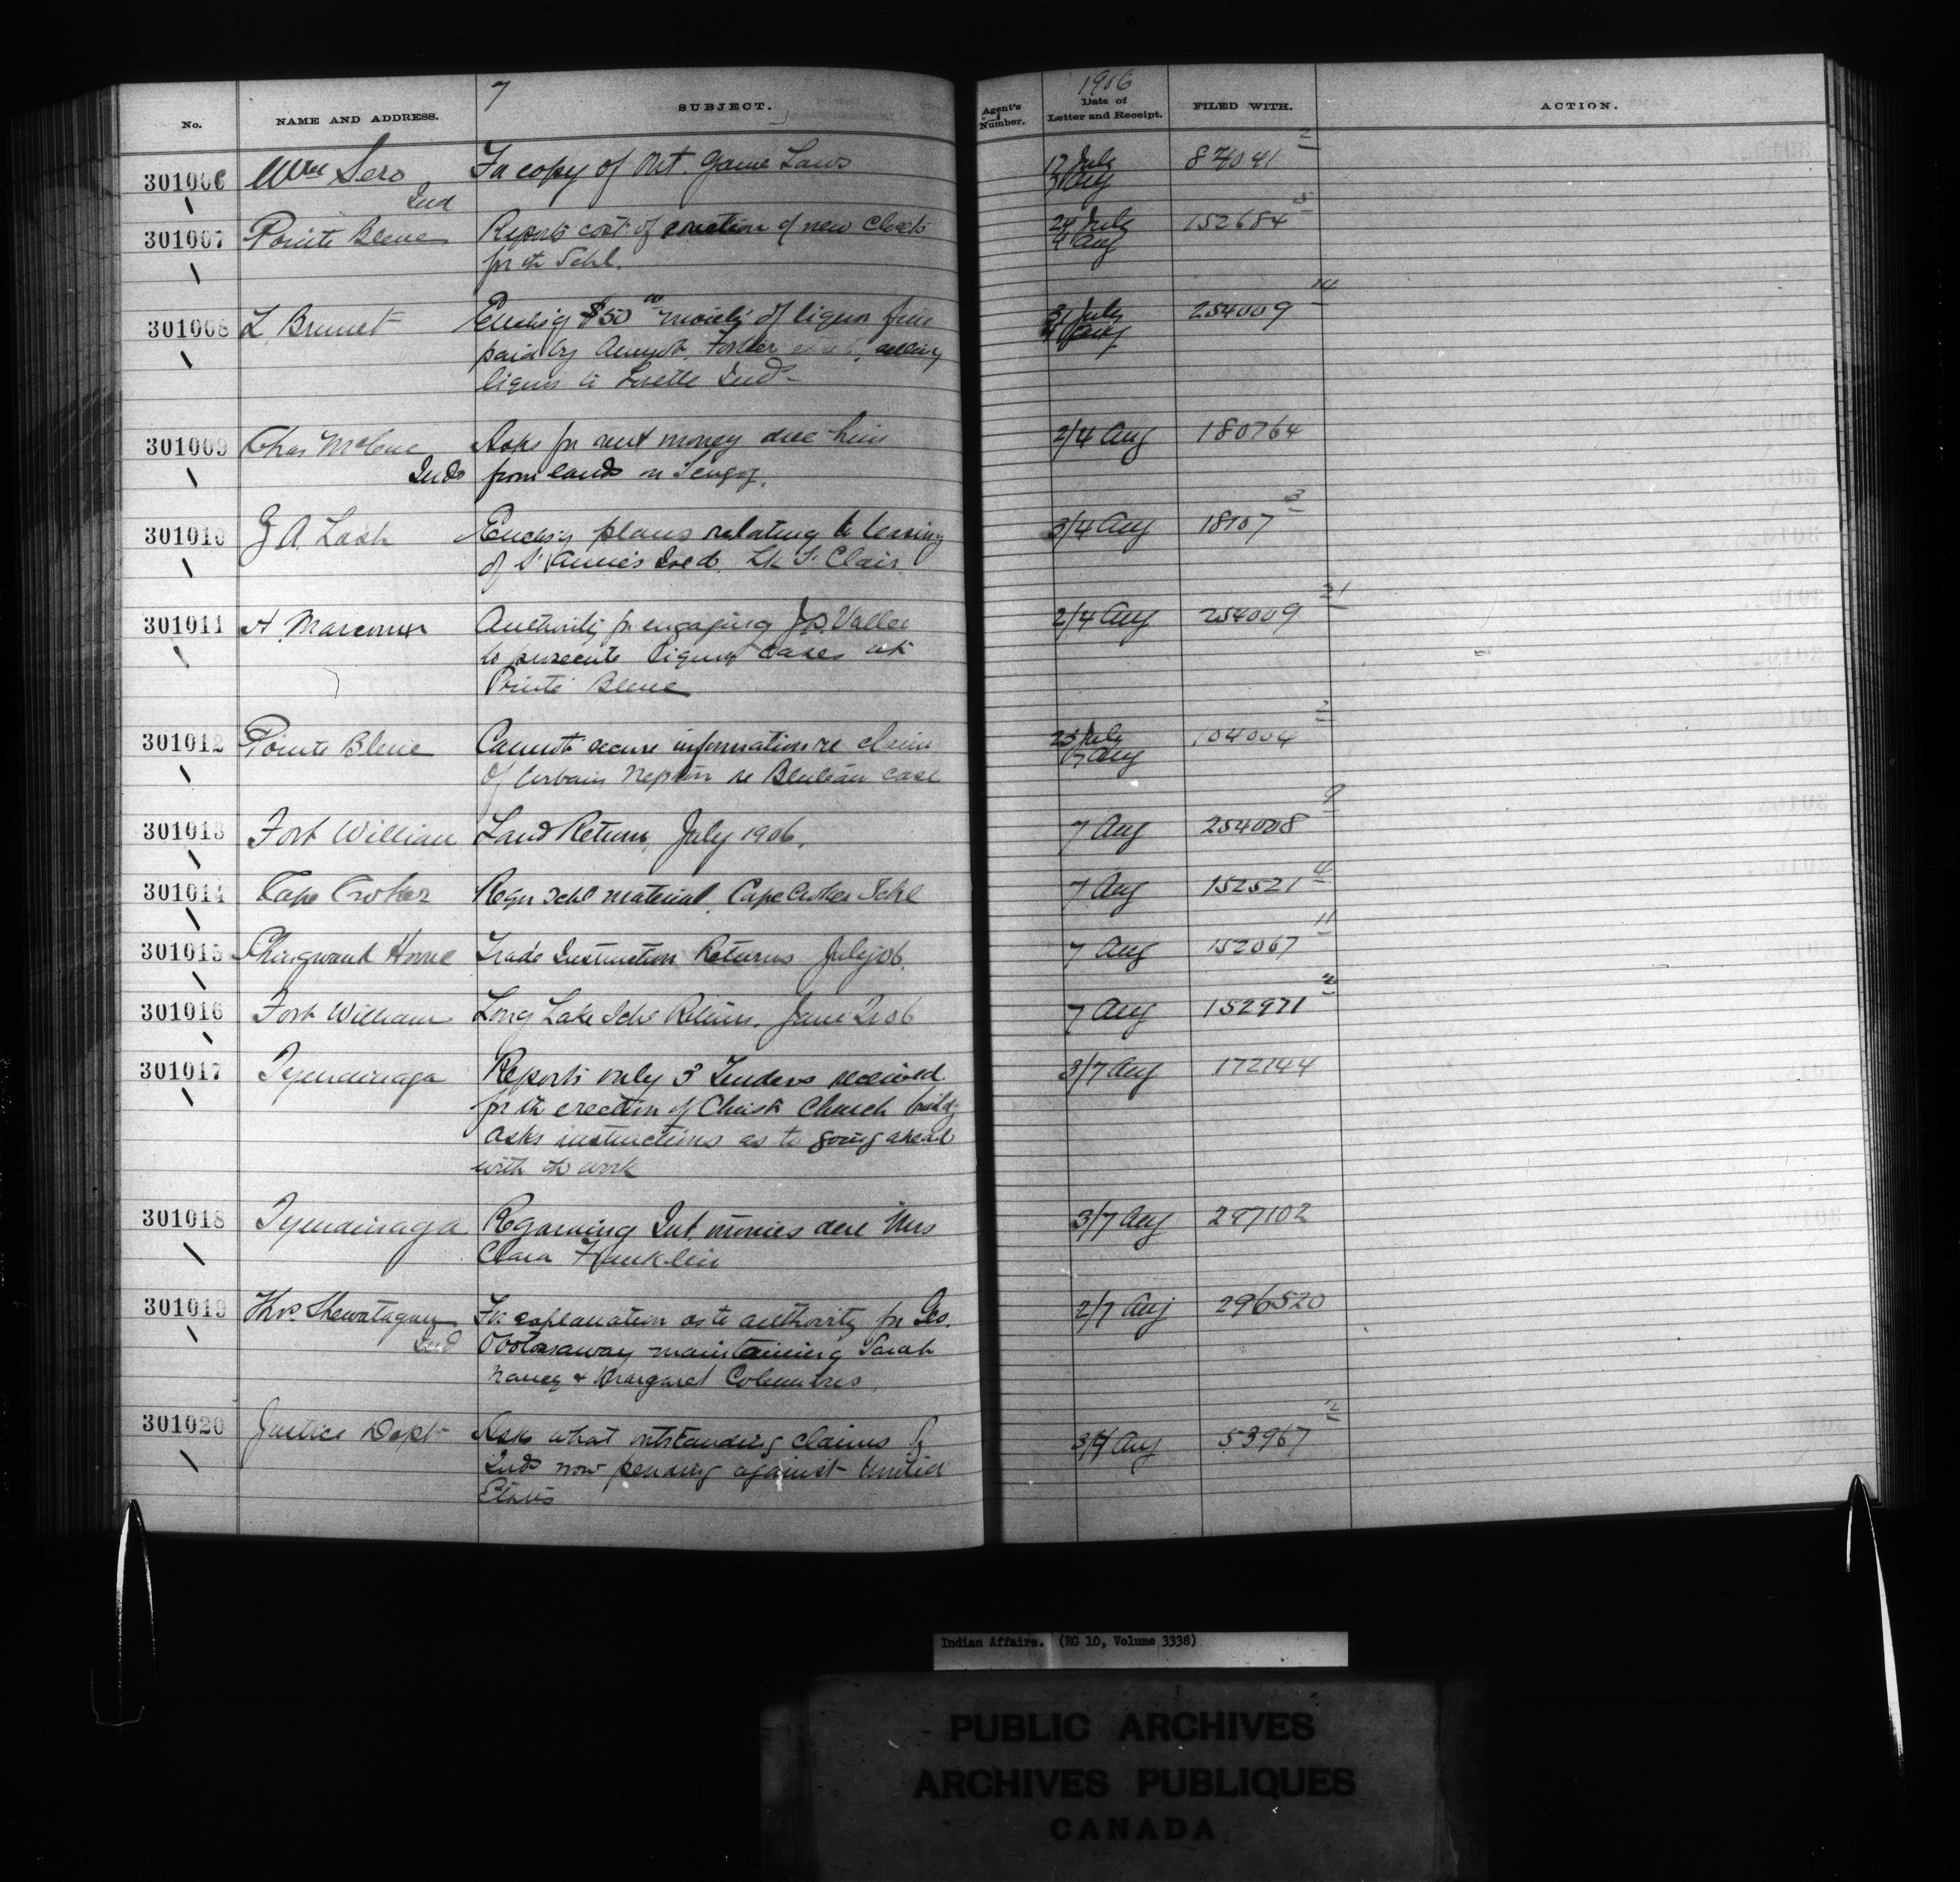 7
1906
No. NAME AND ADDRESS. SUBJECT. Agent's Number. Date of Letter and Receipt. FILED WITH. ACTION.
301006 Wm Sero Ind For copy of Ont. Game Laws 17 July Aug 87041 2
301007 Pointe Bleue Reports cost of erection of new closets 24 July 4 Aug 152684 5
for the Schl.
301008 L. Brunet Enclosg $50 00 moiety of liquor fine 31 July 4 Aug 254009 14
paid by August. Fortier selling
liquor to Lorette Inds
301009 Chas McCue Asks for rent money due him 2/4 Aug 180764
Inds from lands on Scugog.
301010 Z A Lash Enclosg plans relating to leasing 3/4 Aug 18107 3
of St Annie's Isld. Lk St Clair.
301011 A. Marcoux Authority for engaging J.P. Vallee 2/4 Aug 254009 21
to prosecute liquor cases at
Pointe Bleue
301012 Pointe Bleue Cannot secure information re claim 23 July 7 Aug 104004 2
of Urbain Nepton re case
301013 Fort William Land Return, July 1906. 7 Aug 254008 9
301014 Cape Croker Reqn Schl material Cape Croker Schl 7 Aug 152521 4
301015 Shingwauk Home Trade Instruction Returns July 06. 7 Aug 152067 11
301016 Fort William Long Lake Schl Return. June Qr 06 7 Aug 152971 2
301017 Tyendinaga Reports only 3 Tenders received 3/7 Aug 172144
for the erection of Christ Church buildg
Asks instructions as to going ahead
with the work
301018 Tyendinaga Regarding Int. monies due Mrs 3/7 Aug 297102
Clara Franklin
301019 Thos. Shewatagun For explanation as to authority for Geo. 2/7 Aug 296520
Ind maintaining Sarah
Nancy & Margaret Columbus
301020 Justice Dept Asks what outstanding claims by 3/4 Aug 53967 2
Inds now pending against United
States
Indian Affairs. (RG 10, Volume 3338)
PUBLIC ARCHIVES
ARCHIVES PUBLIQUES
CANADA